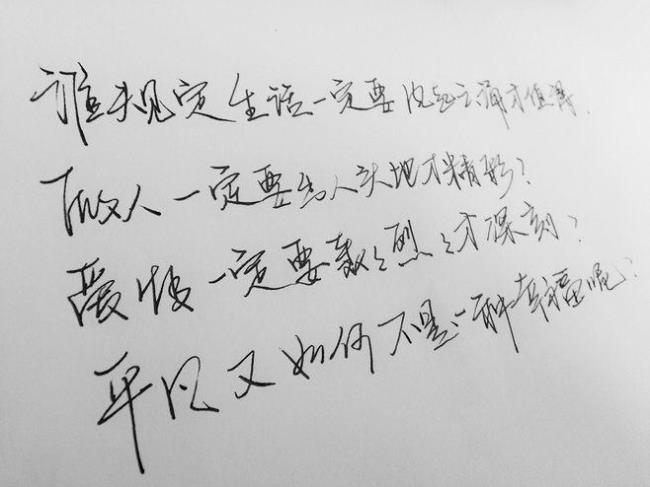 谁规定生活一定要风起云涌才值得.
做人一定要出人头地才精彩?
爱情一定要轰轰烈烈才深刻?
平凡又如何不是一种幸福呢?